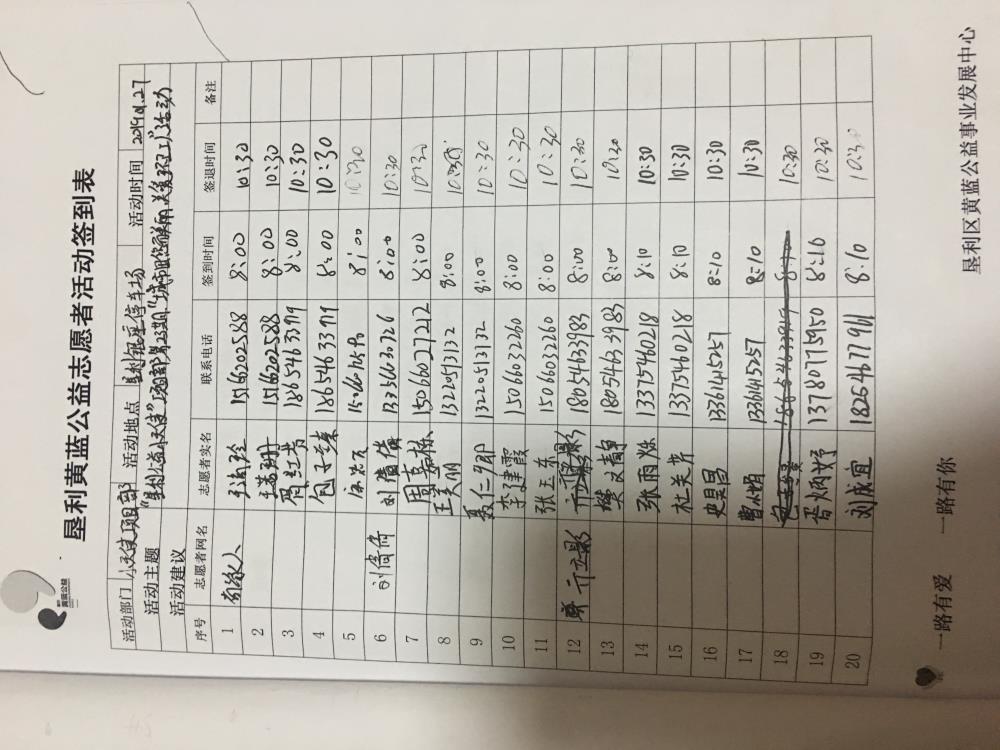 黄蓝公益
垦利黄蓝公益志愿者活动签到表
活动部门 小天使项目部 活动地点 垦利银座停车场 活动时间 2019.01.27
活动主题 "垦利公益小天使"项目部第23期"城市因您而美 关爱环卫"活动
活动建议
序号 志愿者网名 志愿者实名 联系电话 签到时间 签退时间 备注
1 15166202588 8:00 10:30
2 15166202588 8:00 10:30
3 18654633919 8:00 10:30
4 18654633919 8:00 10:30
5 8:00 10:30
6 13356630326 8:00 10:30
7 周嘉栋 15066027212 8:00 10:30
8 13220513132 8:00 10:30
9 聂仁 13220513132 8:00 10:30
10 李建霞 15066032260 8:00 10:30
11 张玉东 15066032260 8:00 10:30
12 亓立影 18054633983 8:00 10:30
13 樊文静 18054633983 8:00 10:30
14 张雨烁 13375460218 8:10 10:30
15 杜关芳 13375460218 8:10 10:30
16 史昊昌 13361445257 8:10 10:30
17 曹娟 13361445257 8:10 10:30
18 18654633919 8:10 10:30
19 胥炳 13780775950 8:10 10:30
20 刘成宜 18254677911 8:10 10:30
一路有爱 一路有你 垦利区黄蓝公益事业发展中心